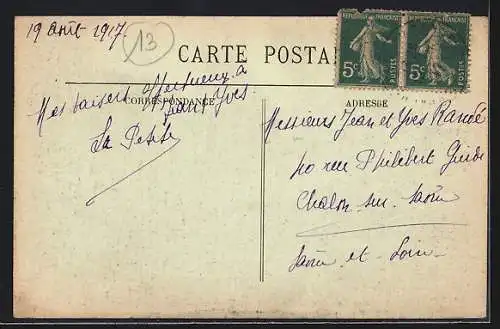 19 août 1917.
13
CARTE POSTALE
RÉPUBLIQUE FRANÇAISE
5c
POSTES
RÉPUBLIQUE FRANÇAISE
5c
POSTES
CORRESPONDANCE
Mes baisers affectueux à
Jean Yves
La Petite
ADRESSE
Messieurs Jean et Yves
rue Philibert Guide
Chalon sur Saône
Saône et Loire